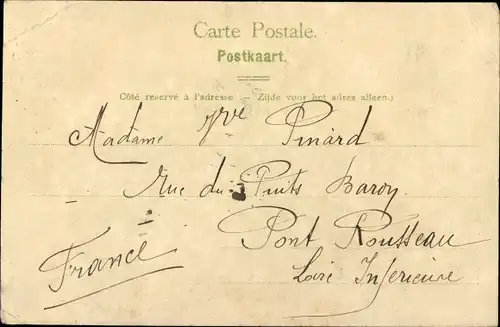 Carte Postale.
Postkaart.
Côté reservé à l'adresse — Zijde voor het adres alleen.)
Madame Vve Pinard
Rue du Puits Baroy
Pont Rousseau
Loire Inferieure
France